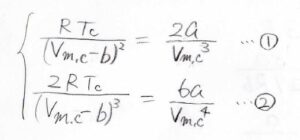 RTc/(Vm,c-b)² = 2a/Vm,c³ …①
2RTc/(Vm,c-b)³ = 6a/Vm,c⁴ …②